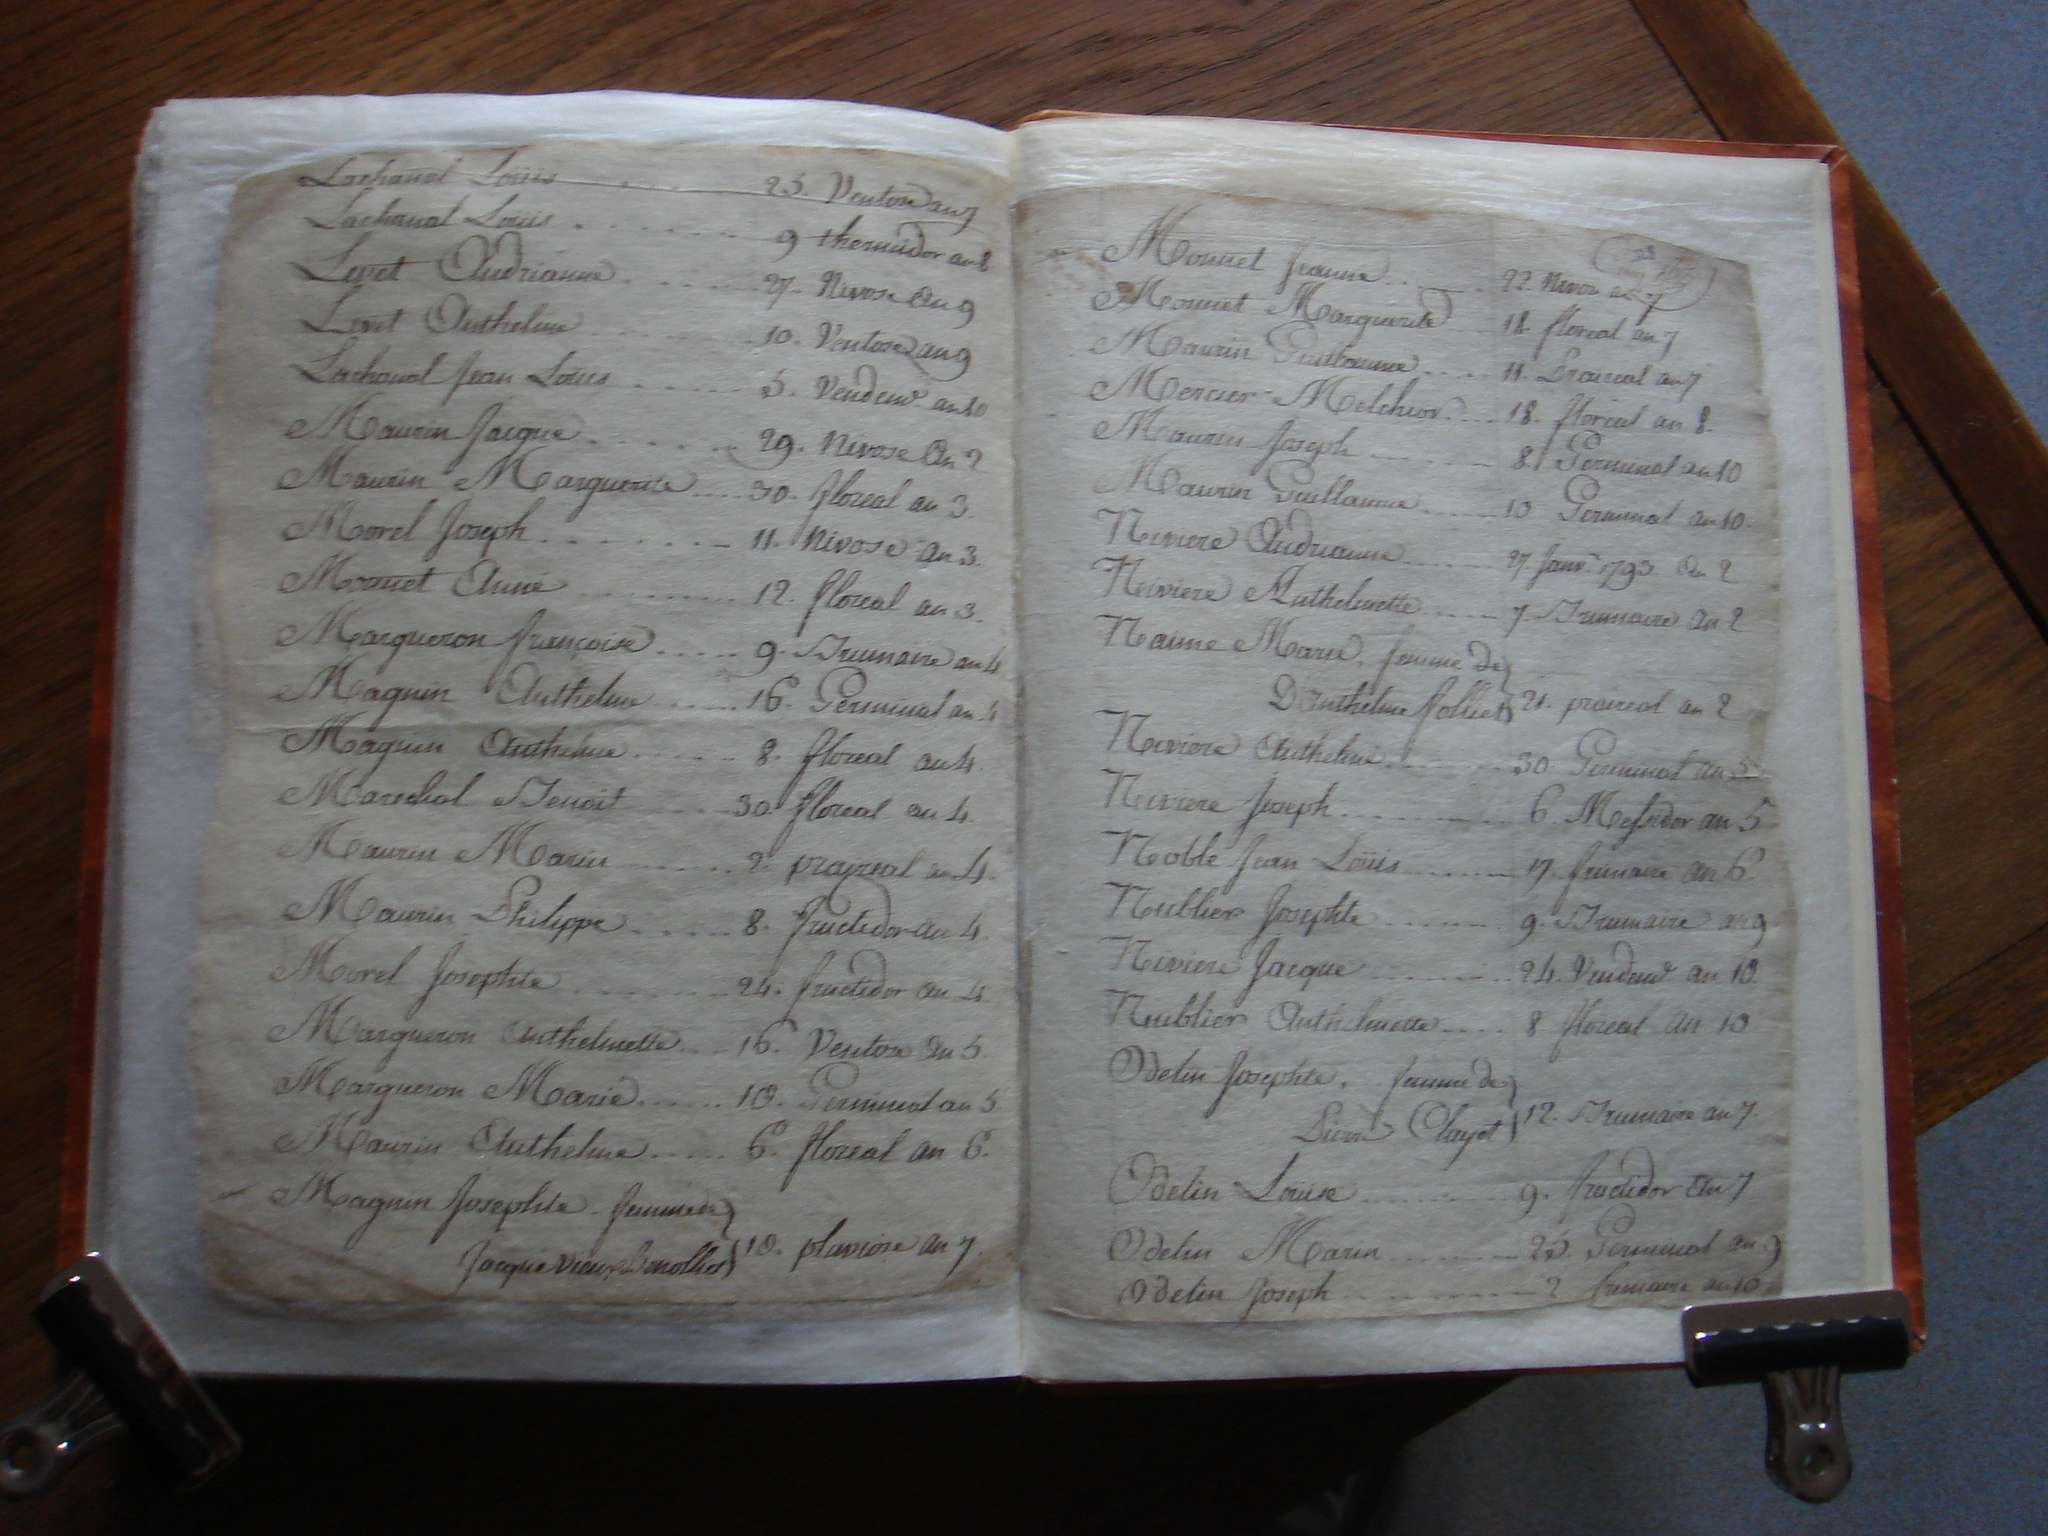 Lachaval Loüis . . . . 25. Ventose an 7
Lachaval Loüis . . . . . . . 9 thermidor an 8
Levet Andrianne . . . . . . 27. Nivose An 9
Levet Anthelme . . . . . . 10. Ventose an 9
Lachaval Jean Loüis . . . . . 5. Vendemre an 10
Maurin Jacque . . . . . . 29. Nivose An 2
Maurin Marguerite . . . . 30. floreal an 3.
Morel Joseph . . . . . . . 11. Nivose an 3.
Monnet Anne . . . . . . . 12. floreal an 3.
Margueron françoise . . . . . 9. Brumaire an 4
Magnin Anthelme . . . . . 16. Germinal an 4
Magnin Anthelme . . . . . 8. floreal an 4.
Marechal Benoit . . . . . 30. floreal an 4.
Maurin Marie . . . . . . 2. prayreal an 4.
Maurin Philippe . . . . . 8. fructidor an 4.
Morel Josephte . . . . . . . 24. fructidor an 4
Margueron Anthelmette . . . 16. Ventose An 5
Margueron Marie . . . . . . 10. Germinal an 5
Maurin Anthelme . . . . . 6. floreal an 6.
Magnin Josephte femme de
Jacque vieux 10. pluviose an 7.
Monnet Jeanne . . . . . . 22. Nivose an 7
Monnet Marguerite 18. floreal an 7
Maurin Guillaume . . . . 11. Praireal an 7
Mercier Melchior . . . . 18. floreal an 8.
Maurin Joseph . . . . . . 8. Germinal an 10
Maurin Guillaume . . . . . 10 Germinal an 10.
Niviere Andrianne . . . . . . 27 Janvr 1793. An 2
Niviere Anthelmette . . . . . 7. Brumaire An 2
Nanne Marie, femme de
D'Anthelme folliet 21. praireal an 2
Niviere Anthelme . . . . . . . 30. Germinal an 5.
Niviere Joseph . . . . . . . . . 6. Messidor an 5
Noble Jean Loüis . . . . . . . 17. frimaire an 6.
Nublier Josephte . . . . . . . 9. Brumaire an 9
Niviere Jacque . . . . . . . 24. Vendemre an 10
Nublier Anthelmette . . . . 8 floreal An 10
Odelin Josephte, femme de
Pierre Clayet 12. Brumaire an 7.
Odelin Louise . . . . . . . . 9. fructidor An 7
Odelin Marie . . . . . . . . 25. Germinal an 9
Odelin Joseph . . . . . . . . . 2 frimaire an 10